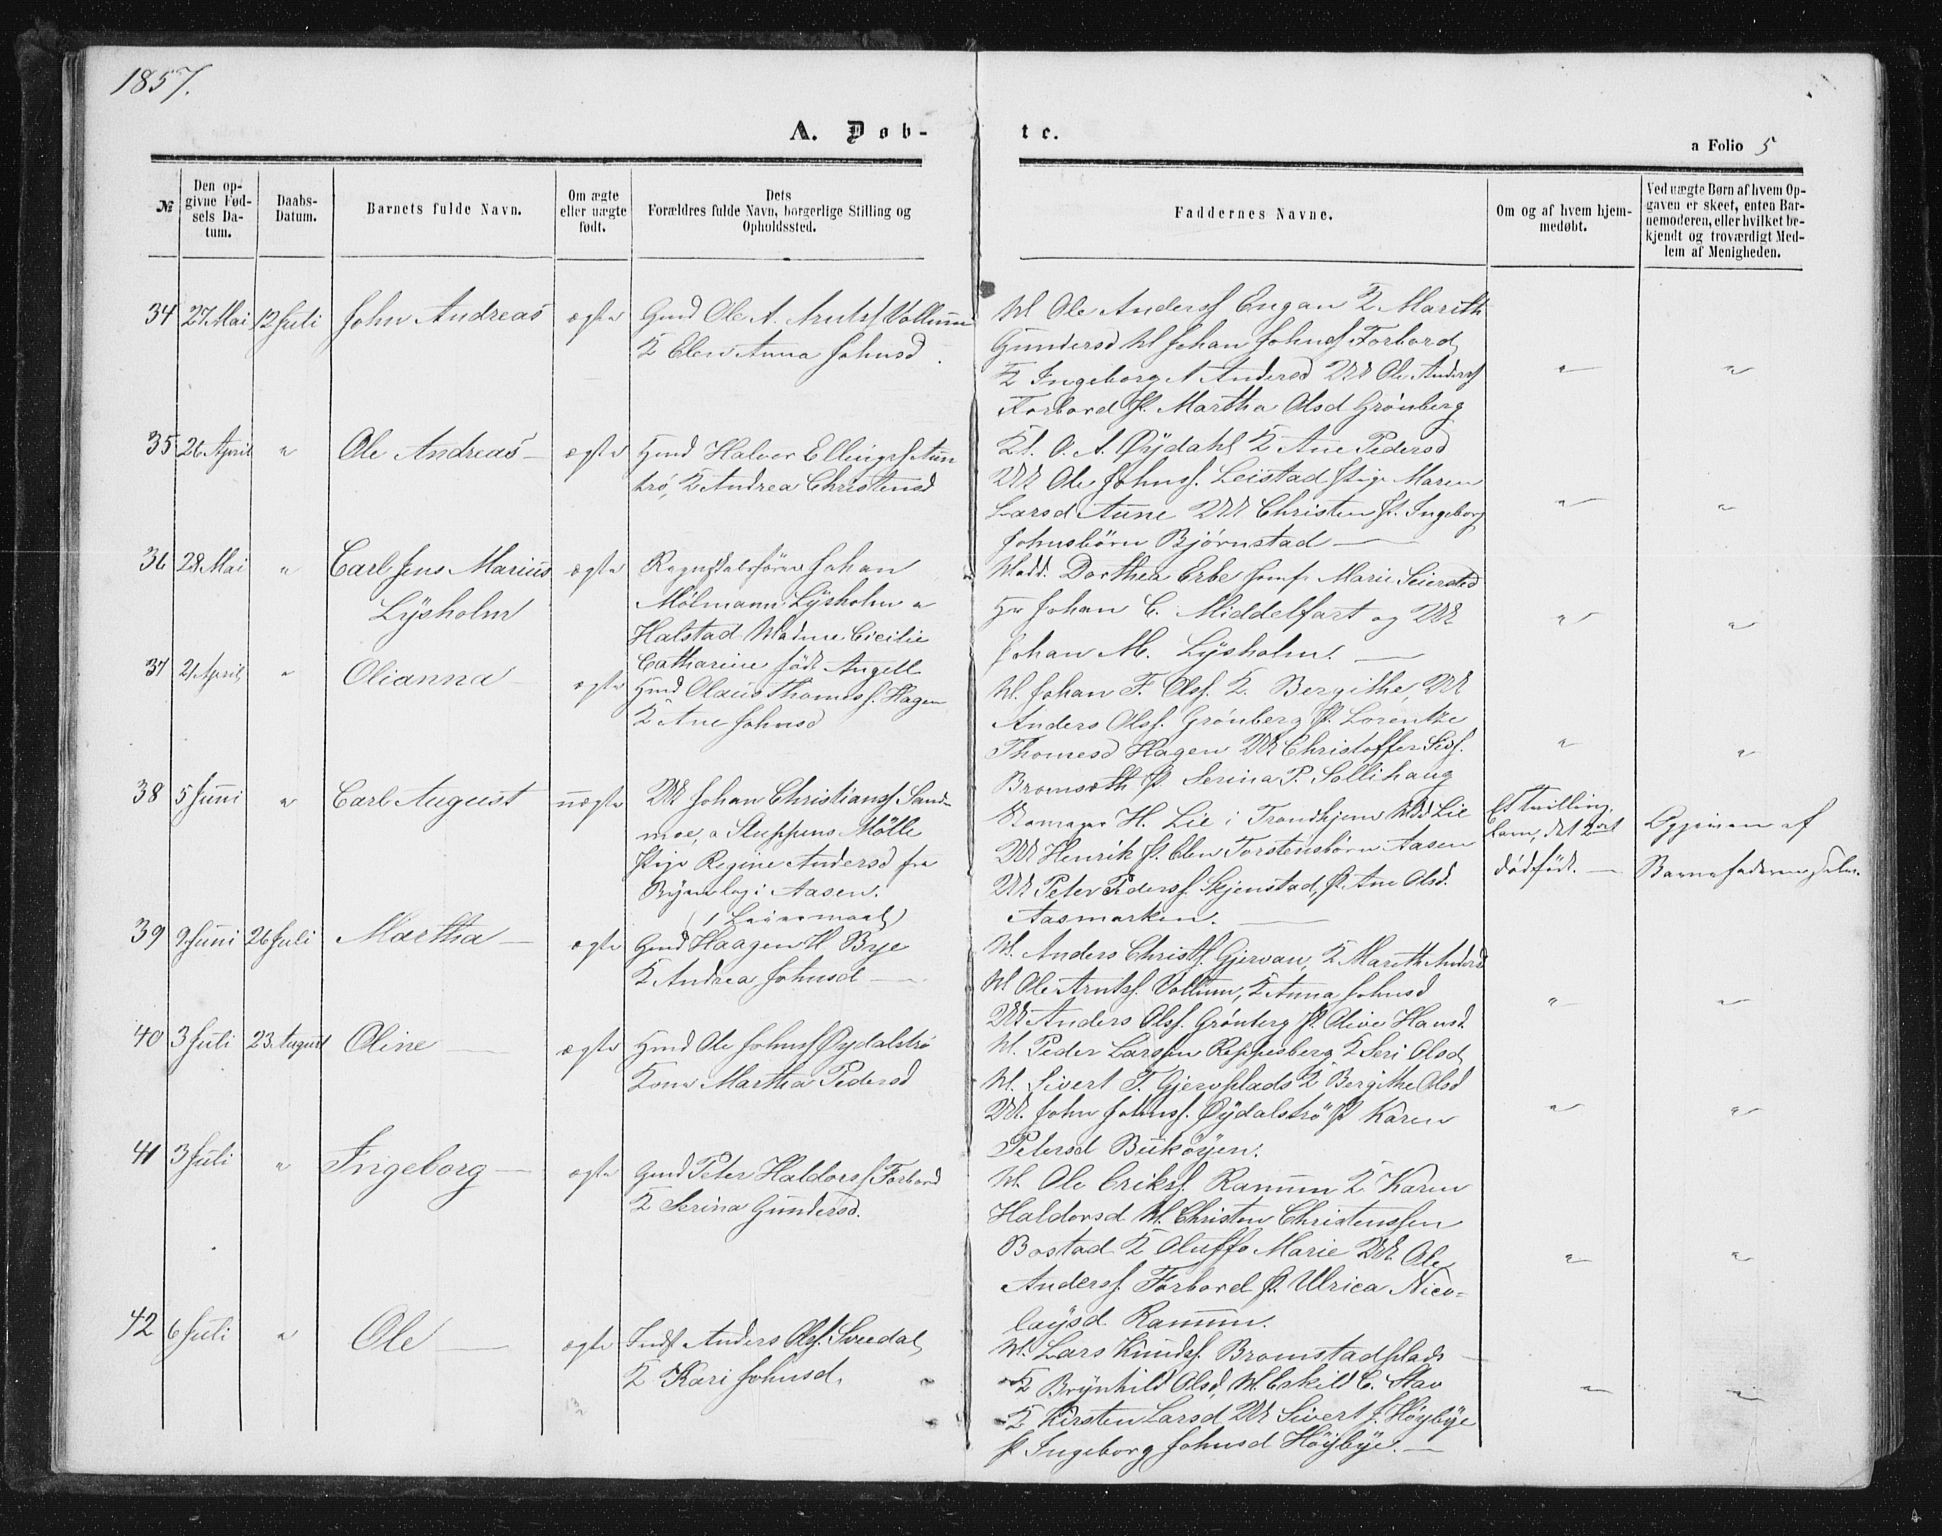 1857.
A. Døb-
te.
a Folio 5
№
Den op-
givne Fød-
sels Da-
tum.
Daabs-
Datum.
Barnets fulde Navn.
Om ægte
eller uægte
født.
Dets
Forældres fulde Navn, borgerlige Stilling og
Opholdssted.
Faddernes Navne.
Om og af hvem hjem-
medøbt.
Ved uægte Børn af hvem Op-
gaven er skeet, enten Bar-
nemoderen, eller hvilket be-
kjendt og troværdigt Med-
lem af Menigheden.
34 27 Mai 12 Juli John Andreas ægte Gmd Ole A. Arntsf Vollum
K Elen Anna Johnsd.
M Ole Andersf Engan K Marith
Gundersd M Johan Johnsf Forbord
K Ingeborg A Andersd Ole Andersf
Forbord P. Martha Olsd Grønberg
" "
35 26 April " Ole Andreas ægte Hmd Halvor Ellingsf Aun
trö, K Andrea Christensd
O. A. Øÿdahl K Ane Pedersd
Ole Johnsf. Leistad Pige Maren
Larsd Aune Christen P. Ingeborg
Johnsbörn Bjørnstad
" "
36 28 Mai " Carl Jens Marius
Lÿsholm
ægte Regnskabsfører Johan
Mølmann Lÿsholm
Halstad Madme Cicilie
Catharine født Angell
Madd. Dorthea Erbe Jomf Marie
Hr Johan C. Middelfart og
Johan M. Lÿsholm.
" "
37 21 April " Olianna ægte Hmd Olaus Thomesf. Hagen
K Ane Johnsd
M. Johan F. Olsf. K. Bergithe,
Anders Olsf. Grønberg P. Lorentze
Thomesd Hagen Christoffer
P. Serina P. Sollihaug
" "
38 5 Juni " Carl August uægte Johan Christiansf Sand-
moe, a Sluppens Mölle
Pige Regine Andersd fra
i Aasen.
(1 Leiermaal)
H. Lie i Trondhjem Mdd Lie
Henrik P. Elen Torstensbörn Aasen
Peter Pedersf. Skjenstad, P. Ane Olsd.
Aasmarken.
Et Tvilling
barn, det
dødfødt.
Opgiven af
Barnefaderen
39 9 Juni 26 Juli Martha ægte Gmd Haagen H Bye
K Andrea Johnsd
M. Anders Christf. Gjervan, K Marith Andersd
M Ole Arntsf. Vollum, K Anna Johnsd
Anders Olsf. Grønberg P. Olive Hansd.
" "
40 3 Juli 23 August Oline ægte Hmd Ole Johnsf Øÿdalströ
Kone Martha Pedersd
M. Peder Larssen Reppesberg, K Seri Olsd
M. Sivert T. Gjervsplads K Bergithe Olsd
John Johnsf. Øÿdalströ P Karen
Petersd Bukøÿen.
" "
41 3 Juli " Ingeborg ægte Gmd Peter Haldorsf Forbord
K Serina Gundersd.
M. Ole Eriksf. Ramum K Karen
Haldorsd M. Christen Christenssen
Bostad K Oluffa Marie Ole
Andersf. Forbord P. Ulrica Nico-
laÿsd. Ramum.
" "
42 6 Juli " Ole ægte Inds Anders Olsf. Svedal
K Kari Johnsd.
M. Lars Knudsf. Bromstadplads
K Brÿnhild Olsd, M. Eskild C. Stav
K Kirsten Larsd Sivert J. Høÿbÿe
P Ingeborg Johnsd Høÿbÿe.
" "